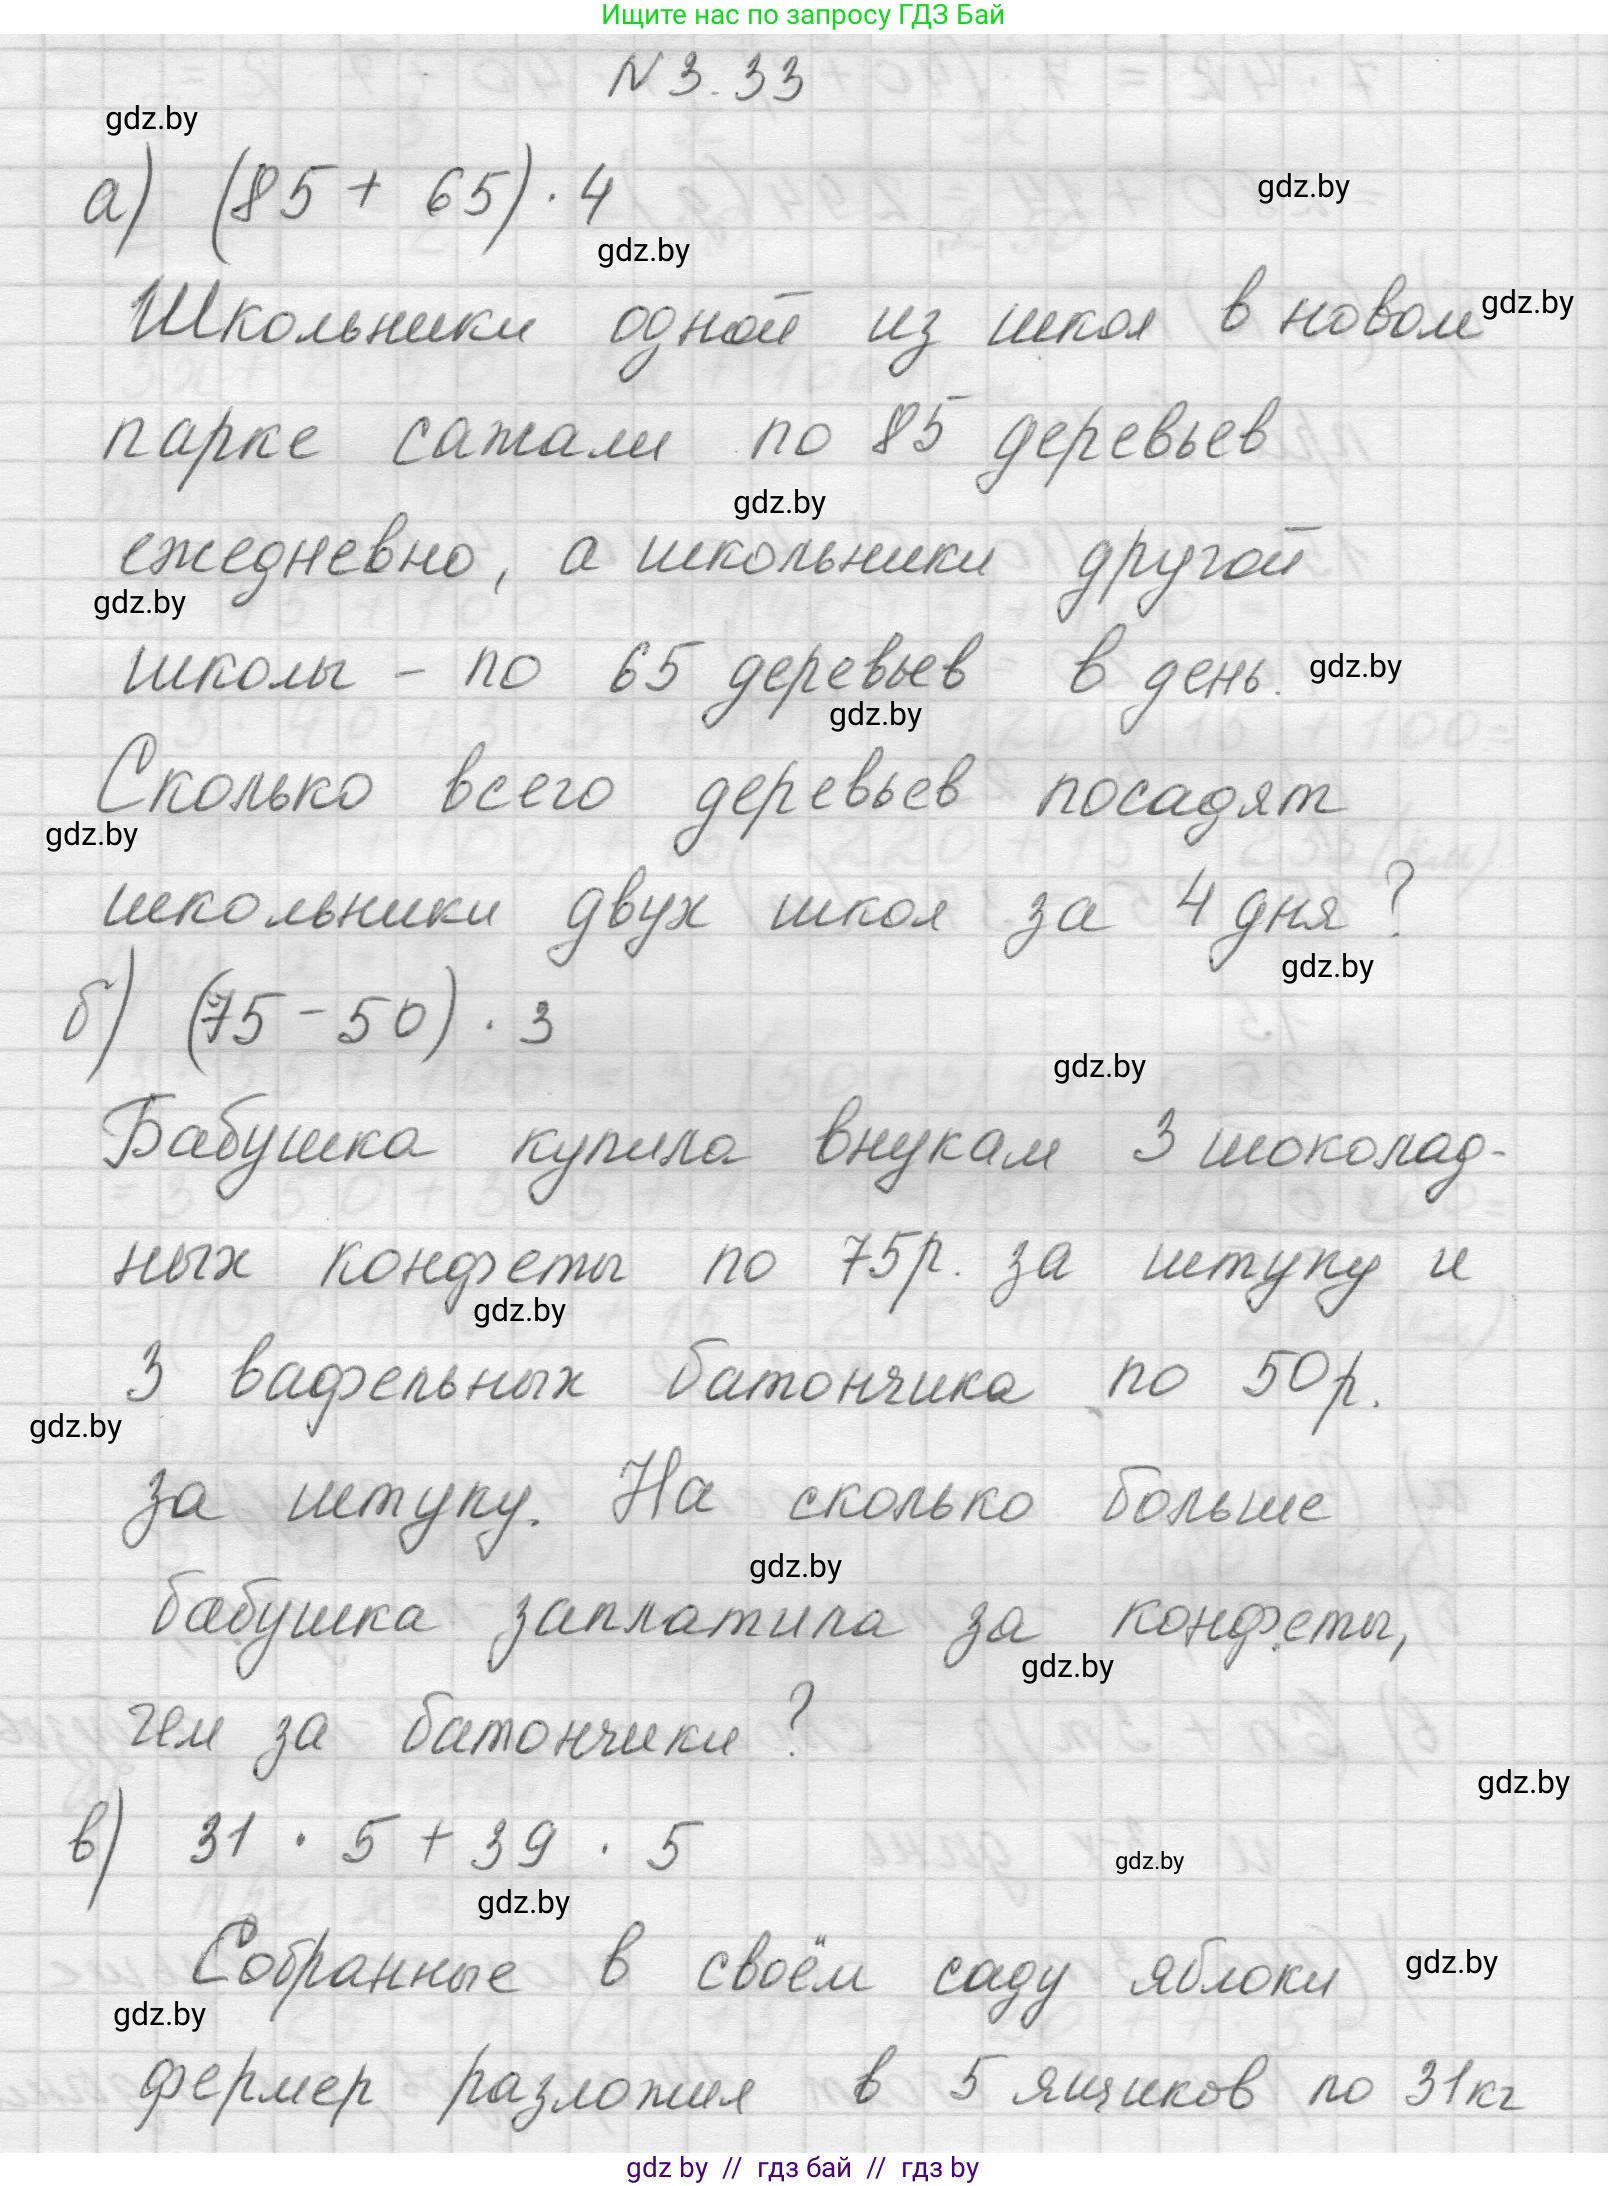 Ищите нас по запросу ГДЗ Бай
N 3.33
gdz.by
а) (85 + 65) · 4
gdz.by
gdz.by
Школьники одной из школ в новом
gdz.by
парке сажали по 85 деревьев
gdz.by
ежедневно, а школьники другой
gdz.by
школы - по 65 деревьев в день.
gdz.by
gdz.by
Сколько всего деревьев посадят
gdz.by
школьники двух школ за 4 дня?
gdz.by
б) (75 - 50) · 3
gdz.by
Бабушка купила внукам 3 шоколад-
ных конфеты по 75р. за штуку и
gdz.by
3 вафельных батончика по 50р.
gdz.by
за штуку. На сколько больше
gdz.by
бабушка заплатила за конфеты,
gdz.by
чем за батончики?
gdz.by
в) 31 · 5 + 39 · 5
gdz.by
gdz.by
Собранные в своём саду яблоки
gdz.by
gdz.by
фермер разложил в 5 ящиков по 31кг
gdz by // гдз бай // гдз by